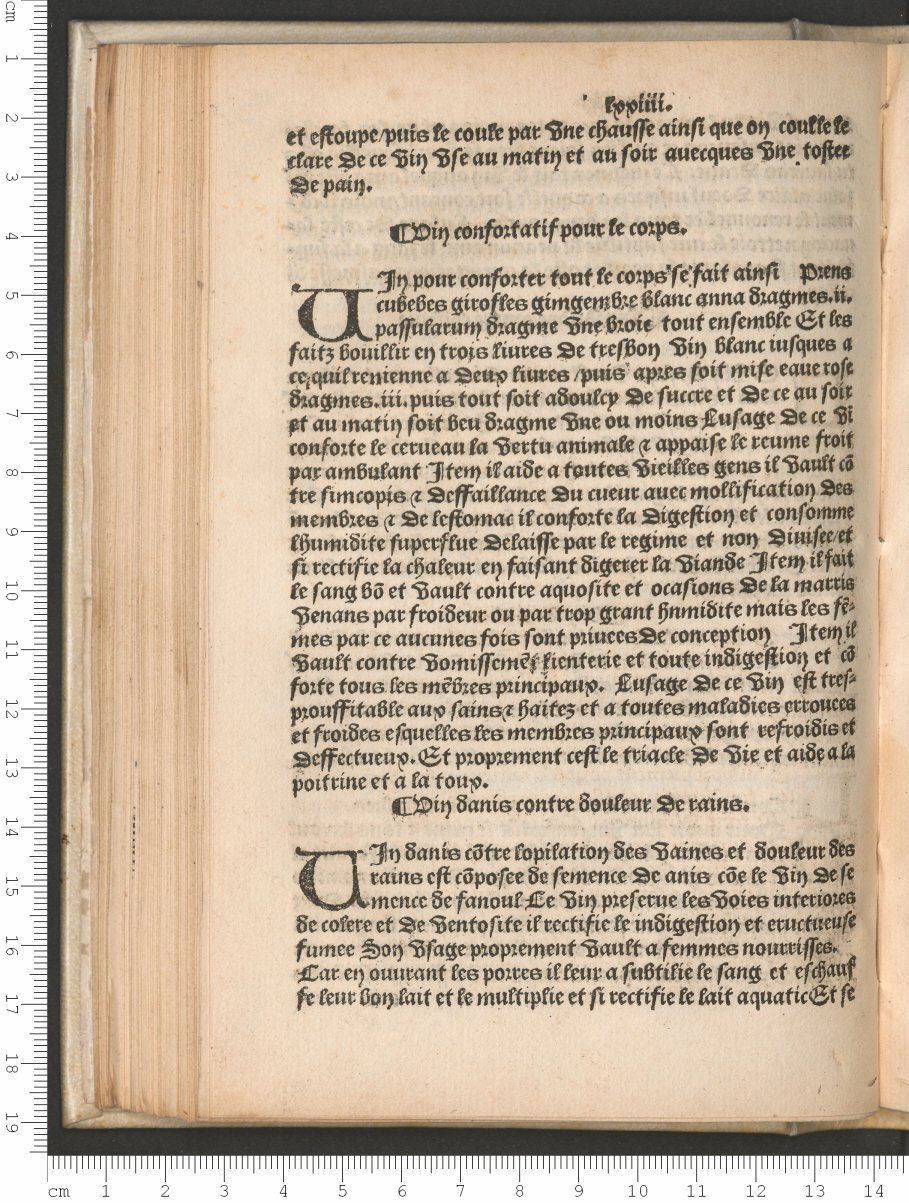 lxxiiii.
et estoupe/puis le coule par vne chausse ainsi que on coulle le
clare de ce vin vse au matin et au soir auecques vne tostee
de pain.
¶Vin confortatif pour le corps.
VIn pour conforter tout le corps se fait ainsi Prens
cubebes girofles gimgembre blanc anna dragmes.ii.
passularum dragme vne broie tout ensemble Et les
faitz bouillir en trois liures de tresbon vin blanc iusques a
ce quil renienne a deux liures /puis apres soit mise eaue rose
dragmes.iii.puis tout soit adoulcy de succre et de ce au soir
et au matin soit beu dragme vne ou moins Lusage de ce vi
conforte le cerueau la vertu animale ⁊ appaise le reume froit
par ambulant Item il aide a toutes vieilles gens il vault cõ
tre simcopis ⁊ deffaillance du cueur auec mollification des
membres ⁊ de lestomac il conforte la digestion et consomme
lhumidite superflue delaisse par le regime et non diuisee/et
si rectifie la chaleur en faisant digerer la viande Item il fait
le sang bõ et vault contre aquosite et ocasions de la matris
venans par froideur ou par trop grant hnmidite mais les fẽ-
mes par ce aucunes fois sont priuees de conception Item il
vault contre vomissemẽt lienterie et toute indigestion et cõ
forte tous les mẽbres principaux. Lusage de ce vin est tres-
prouffitable aux sains⁊ haitez et a toutes maladies errouees
et froides esquelles les membres principaux sont refroidis et
deffectueux. Et proprement cest le triacle de vie et aide a la
poitrine et a la toux.
¶Vin danis contre douleur de rains.
VIn danis cõtre lopilation des vaines et douleur des
rains est cõposee de semence de anis cõe le vin de se
mence de fanoul Ce vin preserue les voies interiores
de colere et de ventosite il rectifie le indigestion et eructueuse
fumee Son vsage proprement vault a femmes nourrisses.
Car en ouurant les porres il leur a subtilie le sang et eschauf
fe leur bon lait et le multiplie et si rectifie le lait aquatic Et se